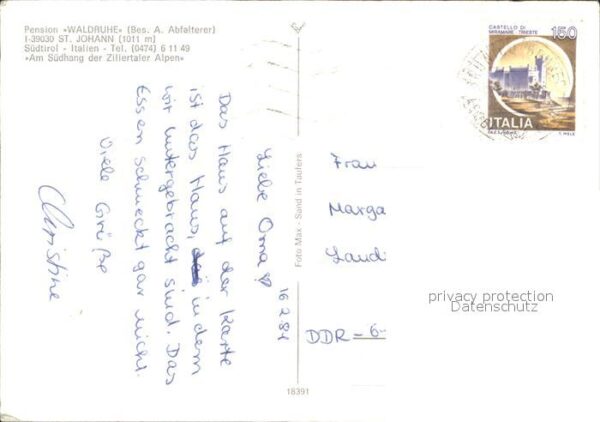 Pension »WALDRUHE« (Bes. A. Abfalterer)
I-39030 ST. JOHANN (1011 m)
Südtirol - Italien - Tel. (0474) 6 11 49
»Am Südhang der Zillertaler Alpen«
CASTELLO DI
MIRAMARE · TRIESTE
150
ITALIA
16 2 84
Liebe Oma!
Das Haus auf der Karte
ist das Haus, in dem
wir untergebracht sind. Das
Essen schmeckt gar nicht.
Viele Grüße
Christine
Foto Max - Sand in Taufers
Frau
Marga
Laudi
DDR - 6
18391
privacy protection
Datenschutz